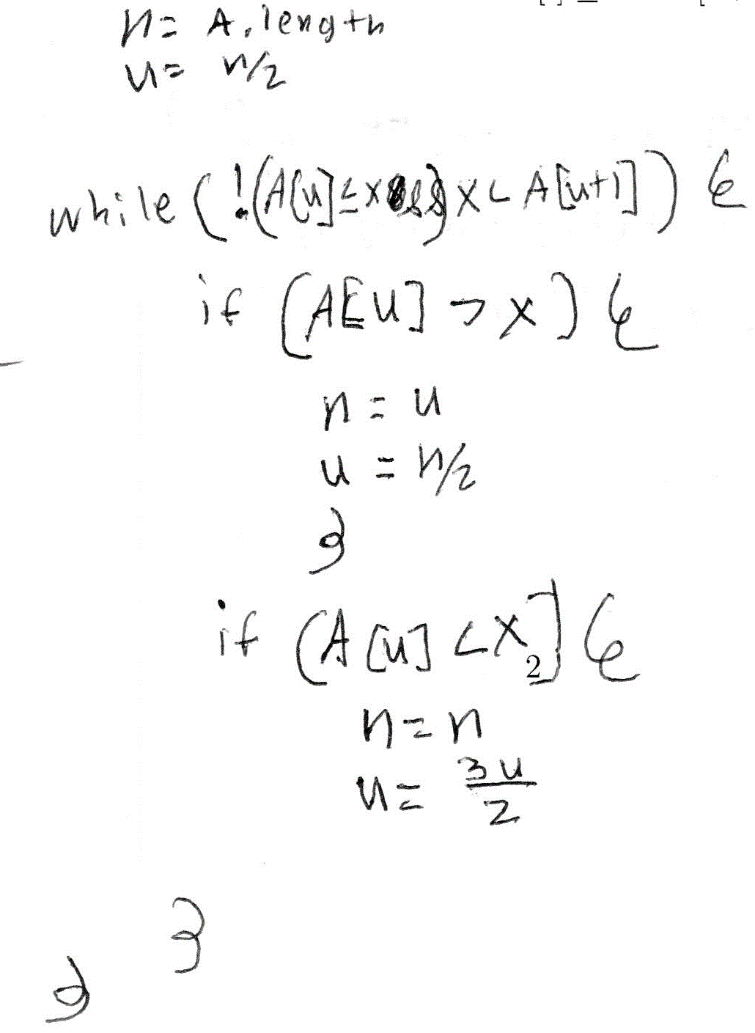 n = A.length
u = n/2
while (!(A[u] ≤ x && x < A[u+1])) {
if (A[u] > x) {
n = u
u = n/2
}
if (A[u] < x) {
2
n = n
u = 3u/2
}
}